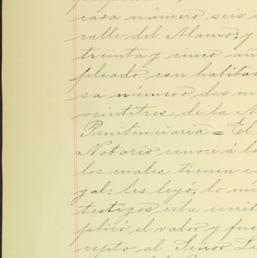 casa número seis d
calle del Alamo; y
treinta y cinco añ
pleado con habitac
sa número dos mi
veintitres, de la M
Penitenciaria = El
Notario conoce á lo
los cuales tienen ca
gal: les leyó, lo mis
testigos esta escrit
plicó el valor y fue
cepto al Señor Li